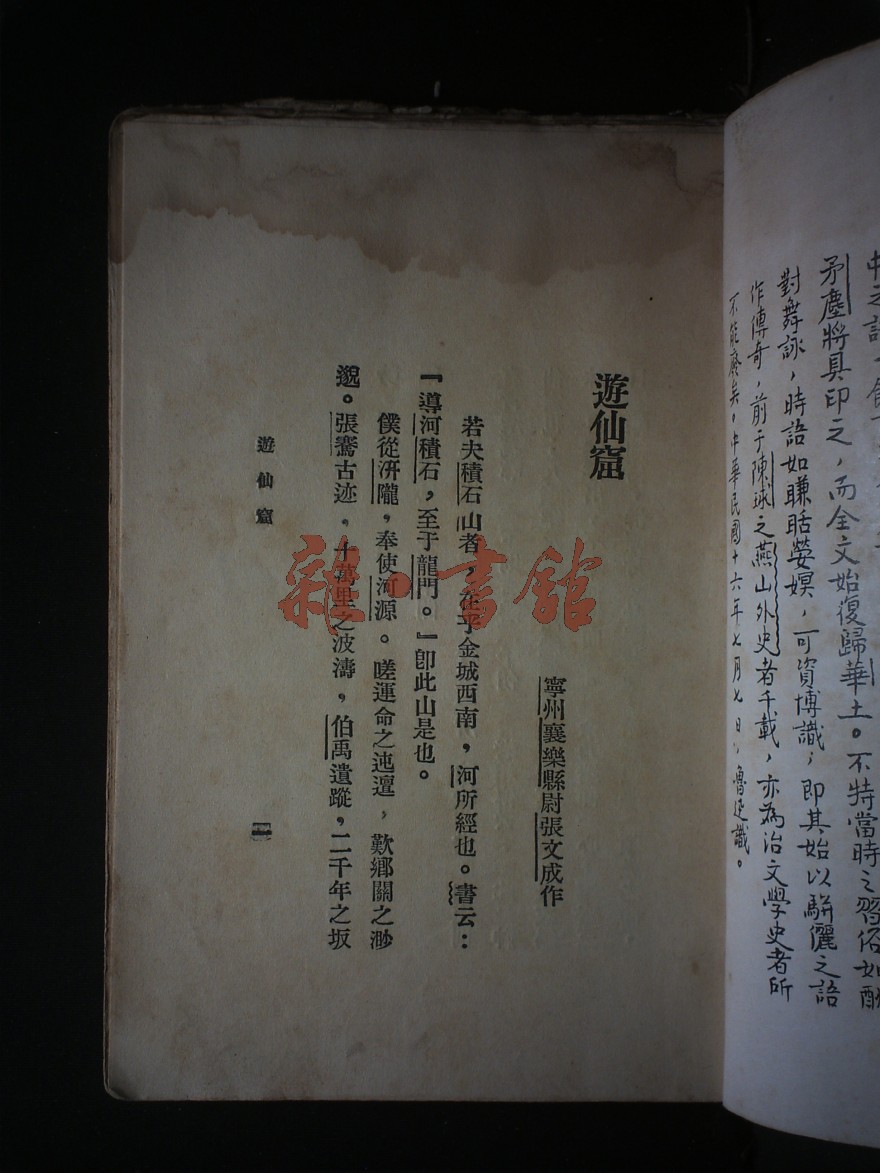 矛塵將具印之，而全文始復歸華土。不特當時之習俗如
對舞詠，時語如賺𦧲嫈嫇，可資博識，即其始以駢儷之語
作傳奇，前于陳球之燕山外史者千載，亦為治文學史者所
不能廢矣。中華民國十六年七月七日，魯迅識。
遊仙窟
寧州襄樂縣尉張文成作
若夫積石山者，在乎金城西南，河所經也。書云：
『導河積石，至于龍門。』卽此山是也。
僕從汧隴，奉使河源。嗟運命之迍邅，歎鄉關之渺
邈。張騫古迹，十萬里之波濤，伯禹遺蹤，二千年之坂
遊仙窟
一
雜·書館